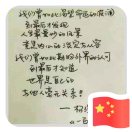 我们曾如此渴望命运的波澜
到最后才发现
人生最曼妙的风景
竟是内心的淡定与从容
我们曾如此期盼外界的认可
到最后才知道
世界是自己的
与他人毫无关系!
—杨绛